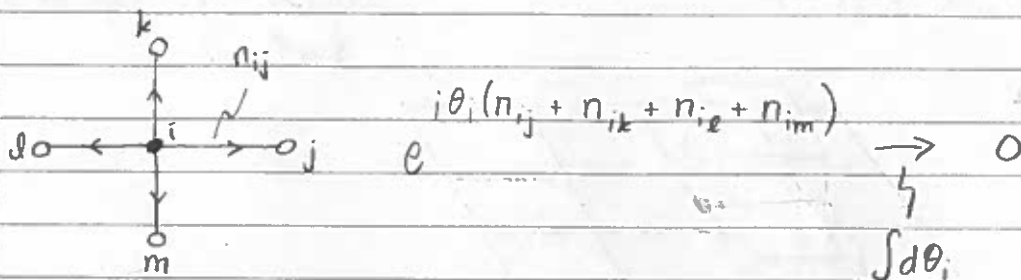 k
n_{ij}
l i j e^{iθ_i(n_{ij} + n_{ik} + n_{il} + n_{im})} → 0
m ∫dθ_i